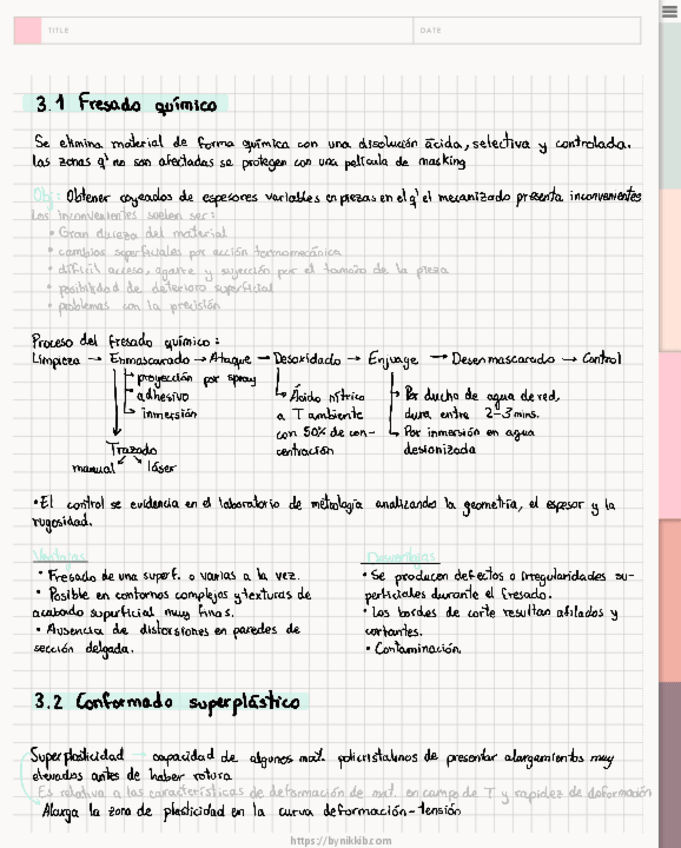 TITLE
DATE
3.1 Fresado químico
Se elimina material de forma química con una disolución ácida, selectiva y controlada.
las zonas q' no son afectadas se protegen con una película de masking
Obj: Obtener cajeados de espesores variables en piezas en el q' el mecanizado presenta inconvenientes
Los inconvenientes suelen ser:
• Gran dureza del material
• cambios superficiales por acción termomecánica
• difícil acceso, agarre y sujección por el tamaño de la pieza
• posibilidad de deterioro superficial
• problemas con la precisión
Proceso del fresado químico:
Limpieza → Enmascarado → Ataque → Desoxidado → Enjuage → Desenmascarado → Control
proyección por spray
adhesivo
inmersión
Trazado
manual láser
Ácido nítrico
a T ambiente
con 50% de con-
centración
Por ducha de agua de red,
dura entre 2-3 mins.
Por inmersión en agua
desionizada
•El control se evidencia en el laboratorio de metrología analizando la geometría, el espesor y la
rugosidad.
Ventajas
• Fresado de una superf. o varias a la vez.
• Posible en contornos complejos y texturas de
acabado superficial muy finas.
• Ausencia de distorsiones en paredes de
sección delgada.
Desventajas
• Se producen defectos o irregularidades su-
perficiales durante el fresado.
• Los bordes de corte resultan afilados y
cortantes.
• Contaminación.
3.2 Conformado superplástico
Superplasticidad → capacidad de algunos mat. policristalinos de presentar alargamientos muy
elevados antes de haber rotura
Es relativa a las características de deformación de mat. en campo de T y rapidez de deformación
Alarga la zona de plasticidad en la curva deformación-tensión
https://bynikkib.com